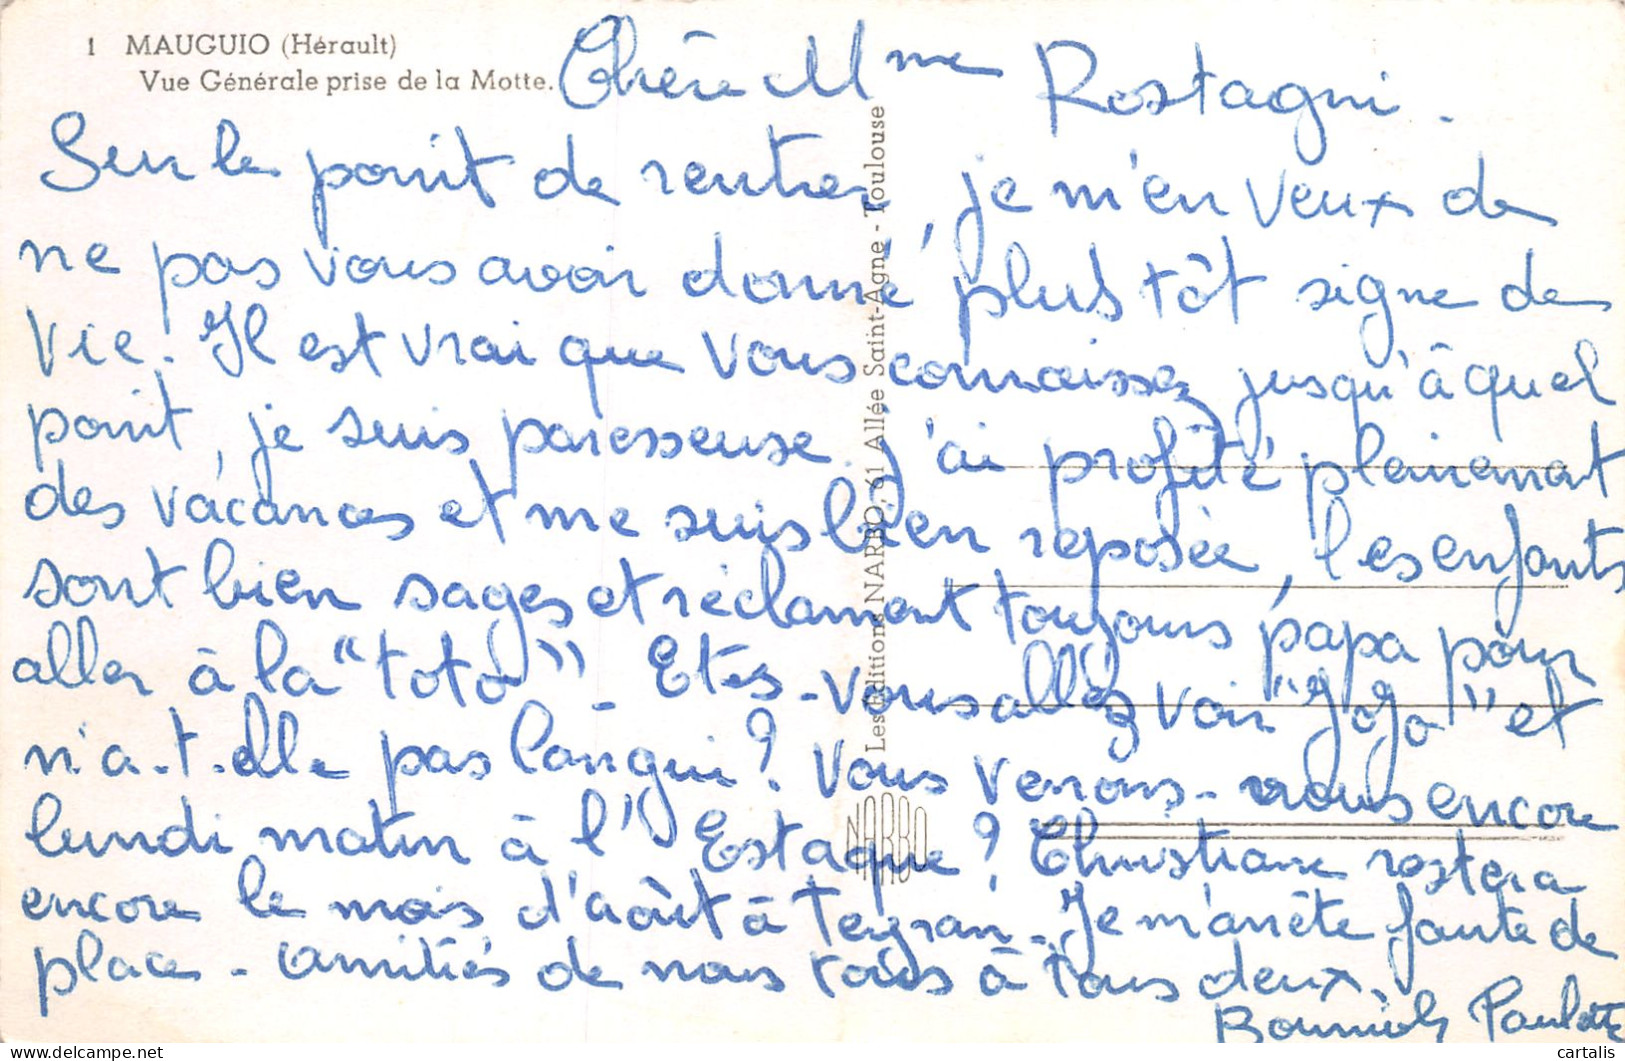 1 MAUGUIO (Hérault)
Vue Générale prise de la Motte.
Chère Mme Rostagni.
Sur le point de rentrer, je m'en veux de
ne pas vous avoir donné plus tôt signe de
vie. Il est vrai que vous connaissez jusqu'à quel
point, je suis paresseuse. J'ai profité pleinement
des vacances et me suis bien reposée, les enfants
sont bien sages et réclament toujours papa pour
aller à la "toto" - Etes-vous allés voir "Jojo" et
n'a-t-elle pas langui? Vous verrons-nous encore
lundi matin à l'Estaque? Christiane restera
encore le mois d'août à Teyran - Je m'arrête faute de
place - amitiés de nous tous à tous deux.
Paulette
Les Editions NARBO, 61 Allée Saint-Agne - Toulouse
NARBO
cartalis